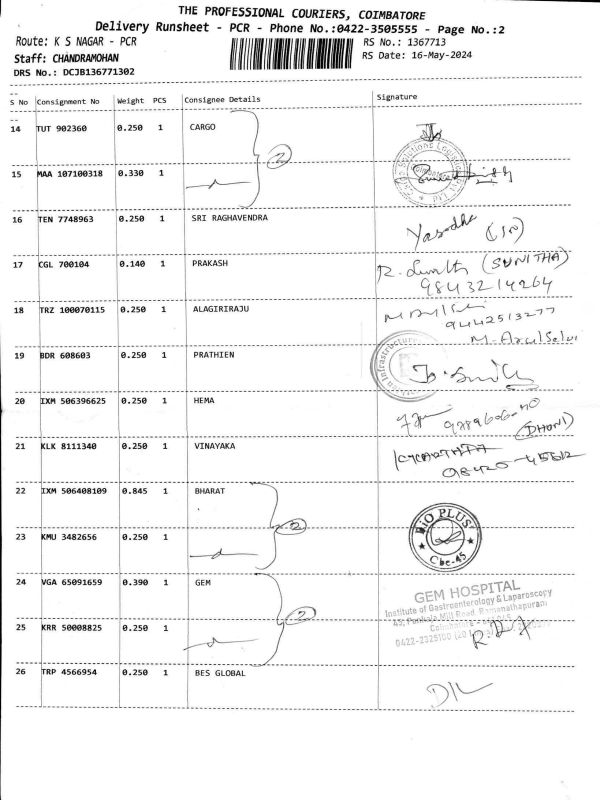 THE PROFESSIONAL COURIERS, COIMBATORE
Delivery Runsheet - PCR - Phone No.:0422-3505555 - Page No.:2
Route: K S NAGAR - PCR
RS No.: 1367713
Staff: CHANDRAMOHAN
RS Date: 16-May-2024
DRS No.: DCJB136771302
S No Consignment No Weight PCS Consignee Details Signature
14 TUT 902360 0.250 1 CARGO
2
15 MAA 107100318 0.330 1
16 TEN 7748963 0.250 1 SRI RAGHAVENDRA
Yasodha
17 CGL 700104 0.140 1 PRAKASH
(SUNITHA)
9843214264
18 TRZ 100070115 0.250 1 ALAGIRIRAJU
9442513277
M. Arul Selvi
19 BDR 608603 0.250 1 PRATHIEN
20 IXM 506396625 0.250 1 HEMA
(DHONI)
21 KLK 8111340 0.250 1 VINAYAKA
22 IXM 506408109 0.845 1 BHARAT
2
BIO PLUS
Cbe-45
23 KMU 3482656 0.250 1
24 VGA 65091659 0.390 1 GEM
GEM HOSPITAL
Institute of Gastroenterology & Laparoscopy
45, Pankaja Mill Road, Ramanathapuram
2
25 KRR 50008825 0.250 1
0422-2325100
26 TRP 4566954 0.250 1 BES GLOBAL